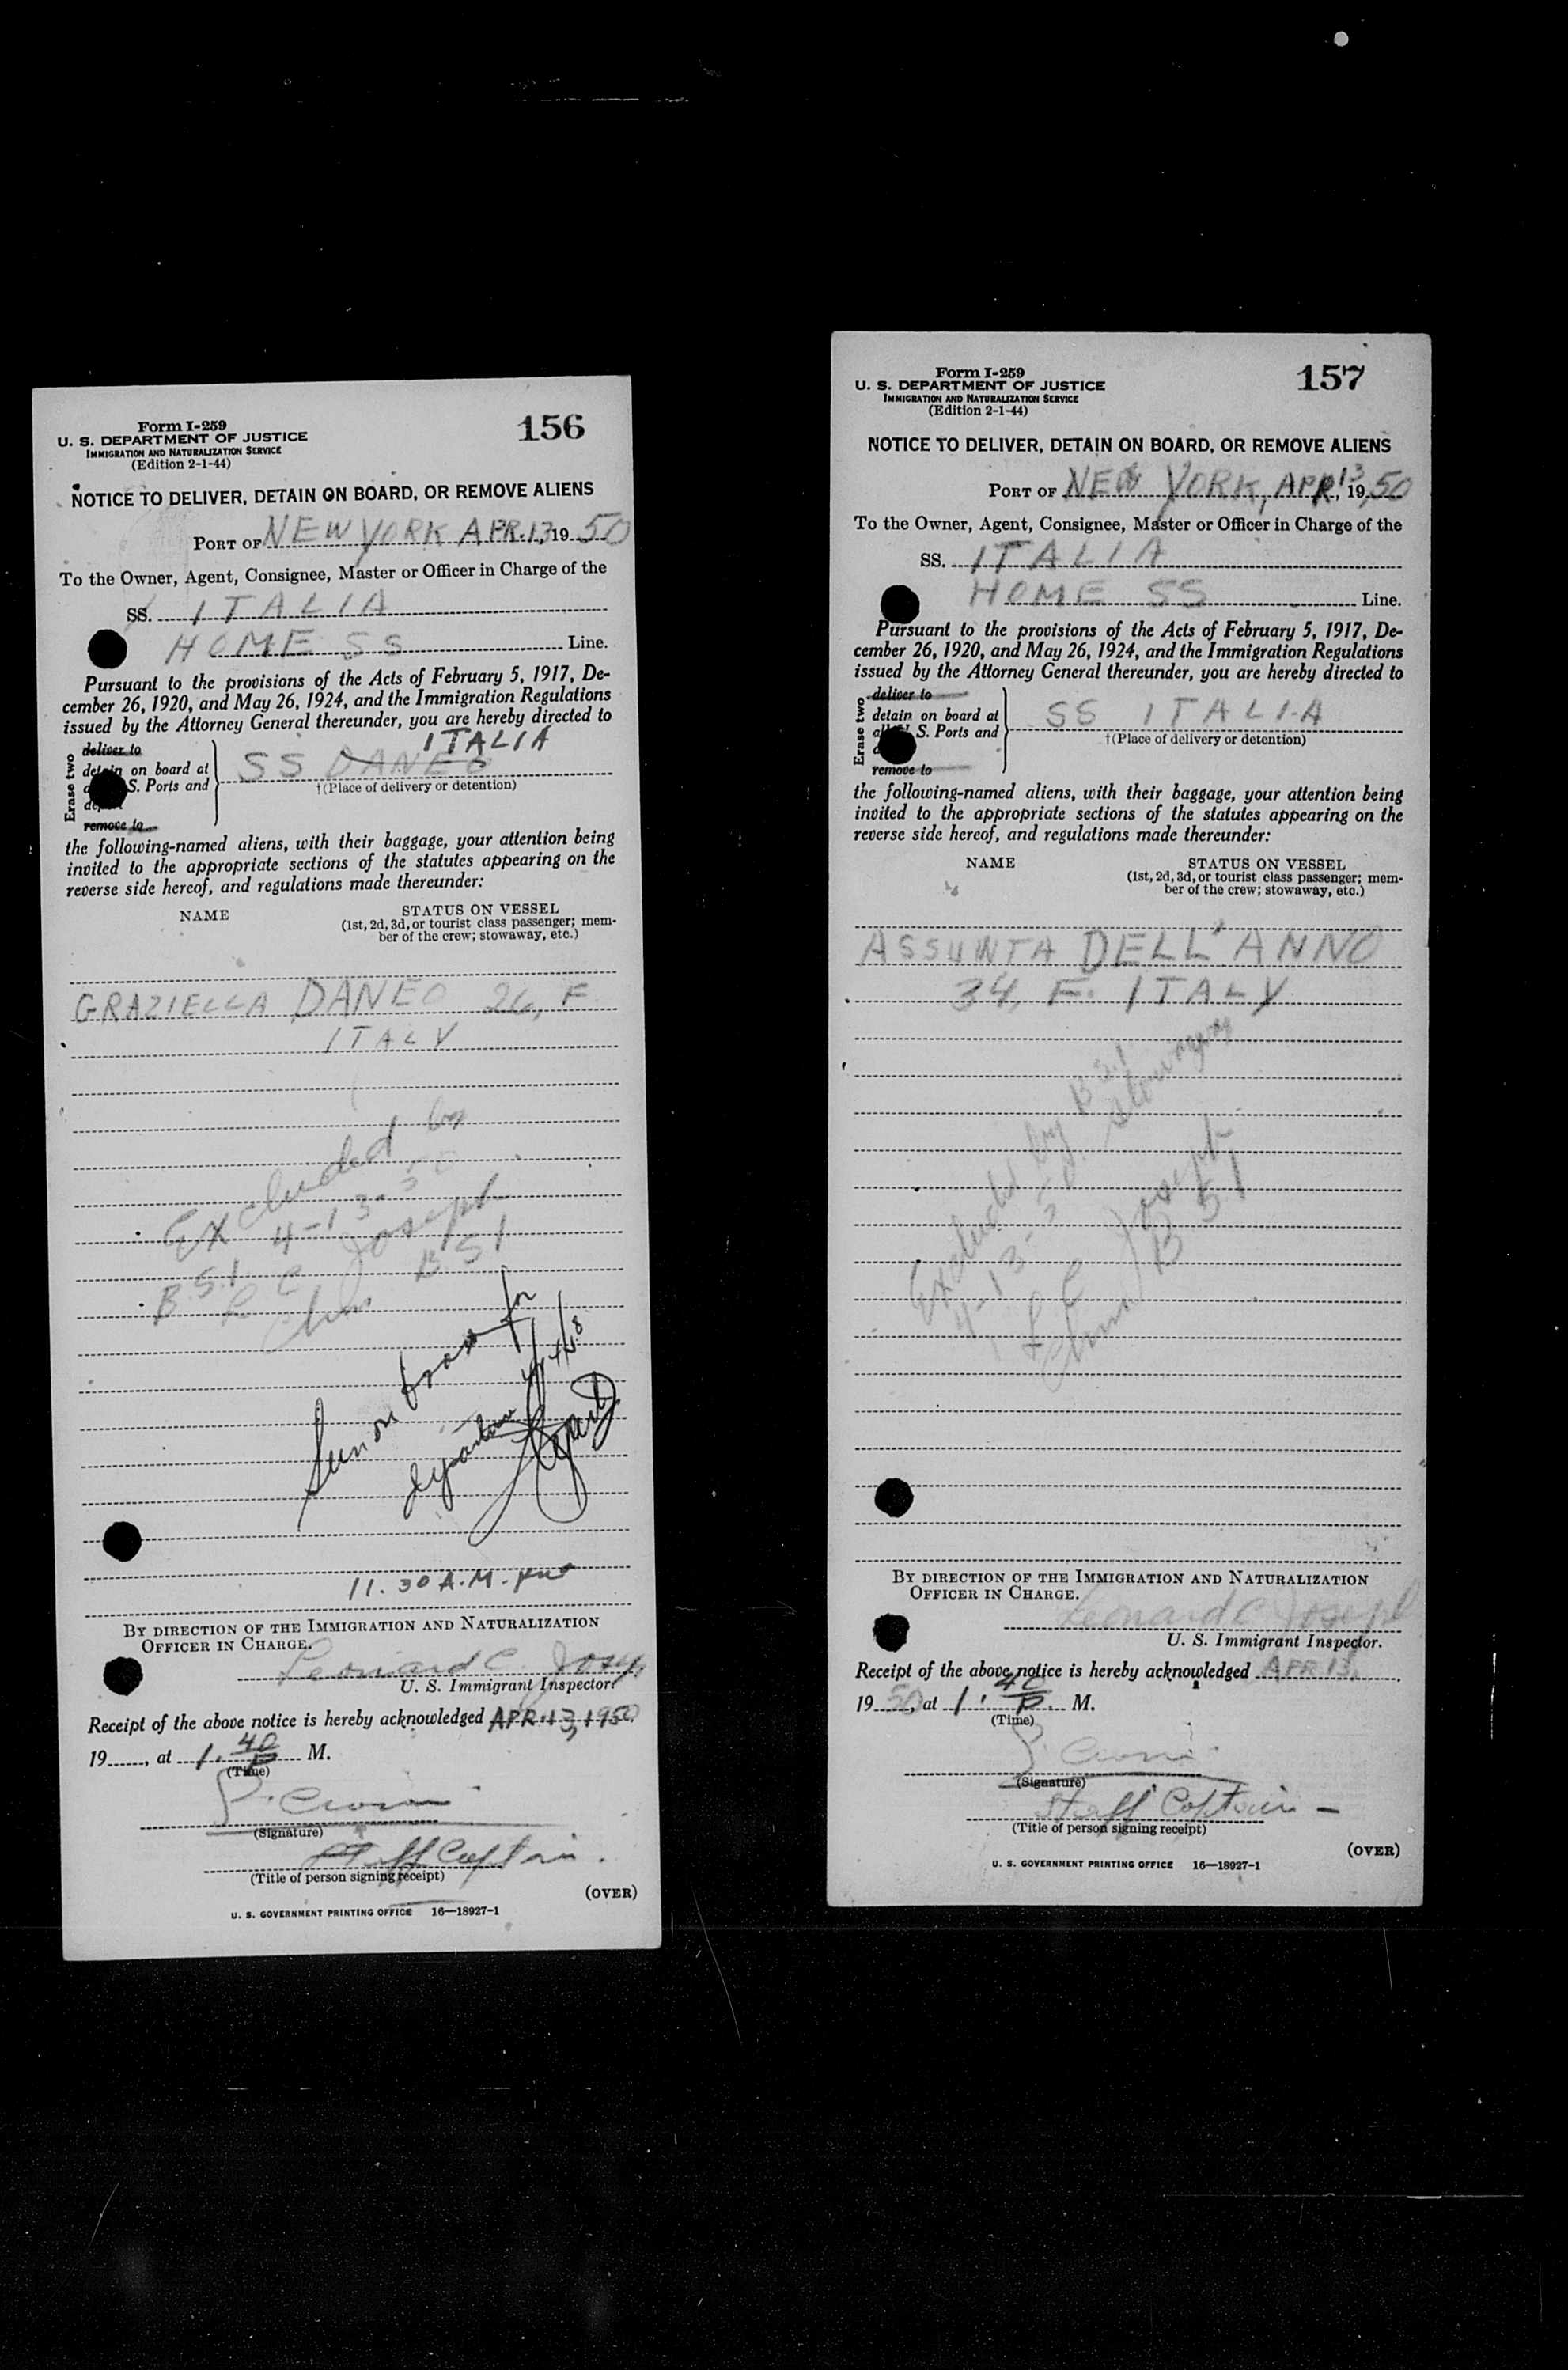 Form I-259
U. S. DEPARTMENT OF JUSTICE
IMMIGRATION AND NATURALIZATION SERVICE
(Edition 2-1-44)
156
NOTICE TO DELIVER, DETAIN ON BOARD, OR REMOVE ALIENS
PORT OF NEW YORK APR. 13, 19 50
To the Owner, Agent, Consignee, Master or Officer in Charge of the
SS. ITALIA
HOME SS Line.
Pursuant to the provisions of the Acts of February 5, 1917, De-
cember 26, 1920, and May 26, 1924, and the Immigration Regulations
issued by the Attorney General thereunder, you are hereby directed to
Erase two
deliver to
ITALIA
detain on board at
SS DANEO
S. Ports and
†(Place of delivery or detention)
remove to
the following-named aliens, with their baggage, your attention being
invited to the appropriate sections of the statutes appearing on the
reverse side hereof, and regulations made thereunder:
NAME
STATUS ON VESSEL
(1st, 2d, 3d, or tourist class passenger; mem-
ber of the crew; stowaway, etc.)
GRAZIELLA DANEO 26, F
ITALY
Excluded by
B.S.I. 4-13-50
L C Joseph
Chm BSI
for
11.30 A.M.
BY DIRECTION OF THE IMMIGRATION AND NATURALIZATION
OFFICER IN CHARGE.
Leonard C. Joseph
U. S. Immigrant Inspector.
Receipt of the above notice is hereby acknowledged APR. 13, 1950.
19, at 1.40 P M.
(Time)
(Signature)
Staff Captain.
(Title of person signing receipt)
(OVER)
U. S. GOVERNMENT PRINTING OFFICE 16—18927-1
Form I-259
U. S. DEPARTMENT OF JUSTICE
IMMIGRATION AND NATURALIZATION SERVICE
(Edition 2-1-44)
157
NOTICE TO DELIVER, DETAIN ON BOARD, OR REMOVE ALIENS
PORT OF NEW YORK, APR 13, 19 50
To the Owner, Agent, Consignee, Master or Officer in Charge of the
SS. ITALIA
HOME SS Line.
Pursuant to the provisions of the Acts of February 5, 1917, De-
cember 26, 1920, and May 26, 1924, and the Immigration Regulations
issued by the Attorney General thereunder, you are hereby directed to
Erase two
deliver to
detain on board at
SS ITALIA
S. Ports and
†(Place of delivery or detention)
remove to
the following-named aliens, with their baggage, your attention being
invited to the appropriate sections of the statutes appearing on the
reverse side hereof, and regulations made thereunder:
NAME
STATUS ON VESSEL
(1st, 2d, 3d, or tourist class passenger; mem-
ber of the crew; stowaway, etc.)
ASSUNTA DELL'ANNO
34, F. ITALY
Excluded by B.S.I.
4-13-50. Stowaway
L C Joseph
Chm B S I
BY DIRECTION OF THE IMMIGRATION AND NATURALIZATION
OFFICER IN CHARGE.
Leonard C Joseph
U. S. Immigrant Inspector.
Receipt of the above notice is hereby acknowledged APR 13,
19 50, at 1.40 P. M.
(Time)
(Signature)
Staff Captain —
(Title of person signing receipt)
(OVER)
U. S. GOVERNMENT PRINTING OFFICE 16—18927-1